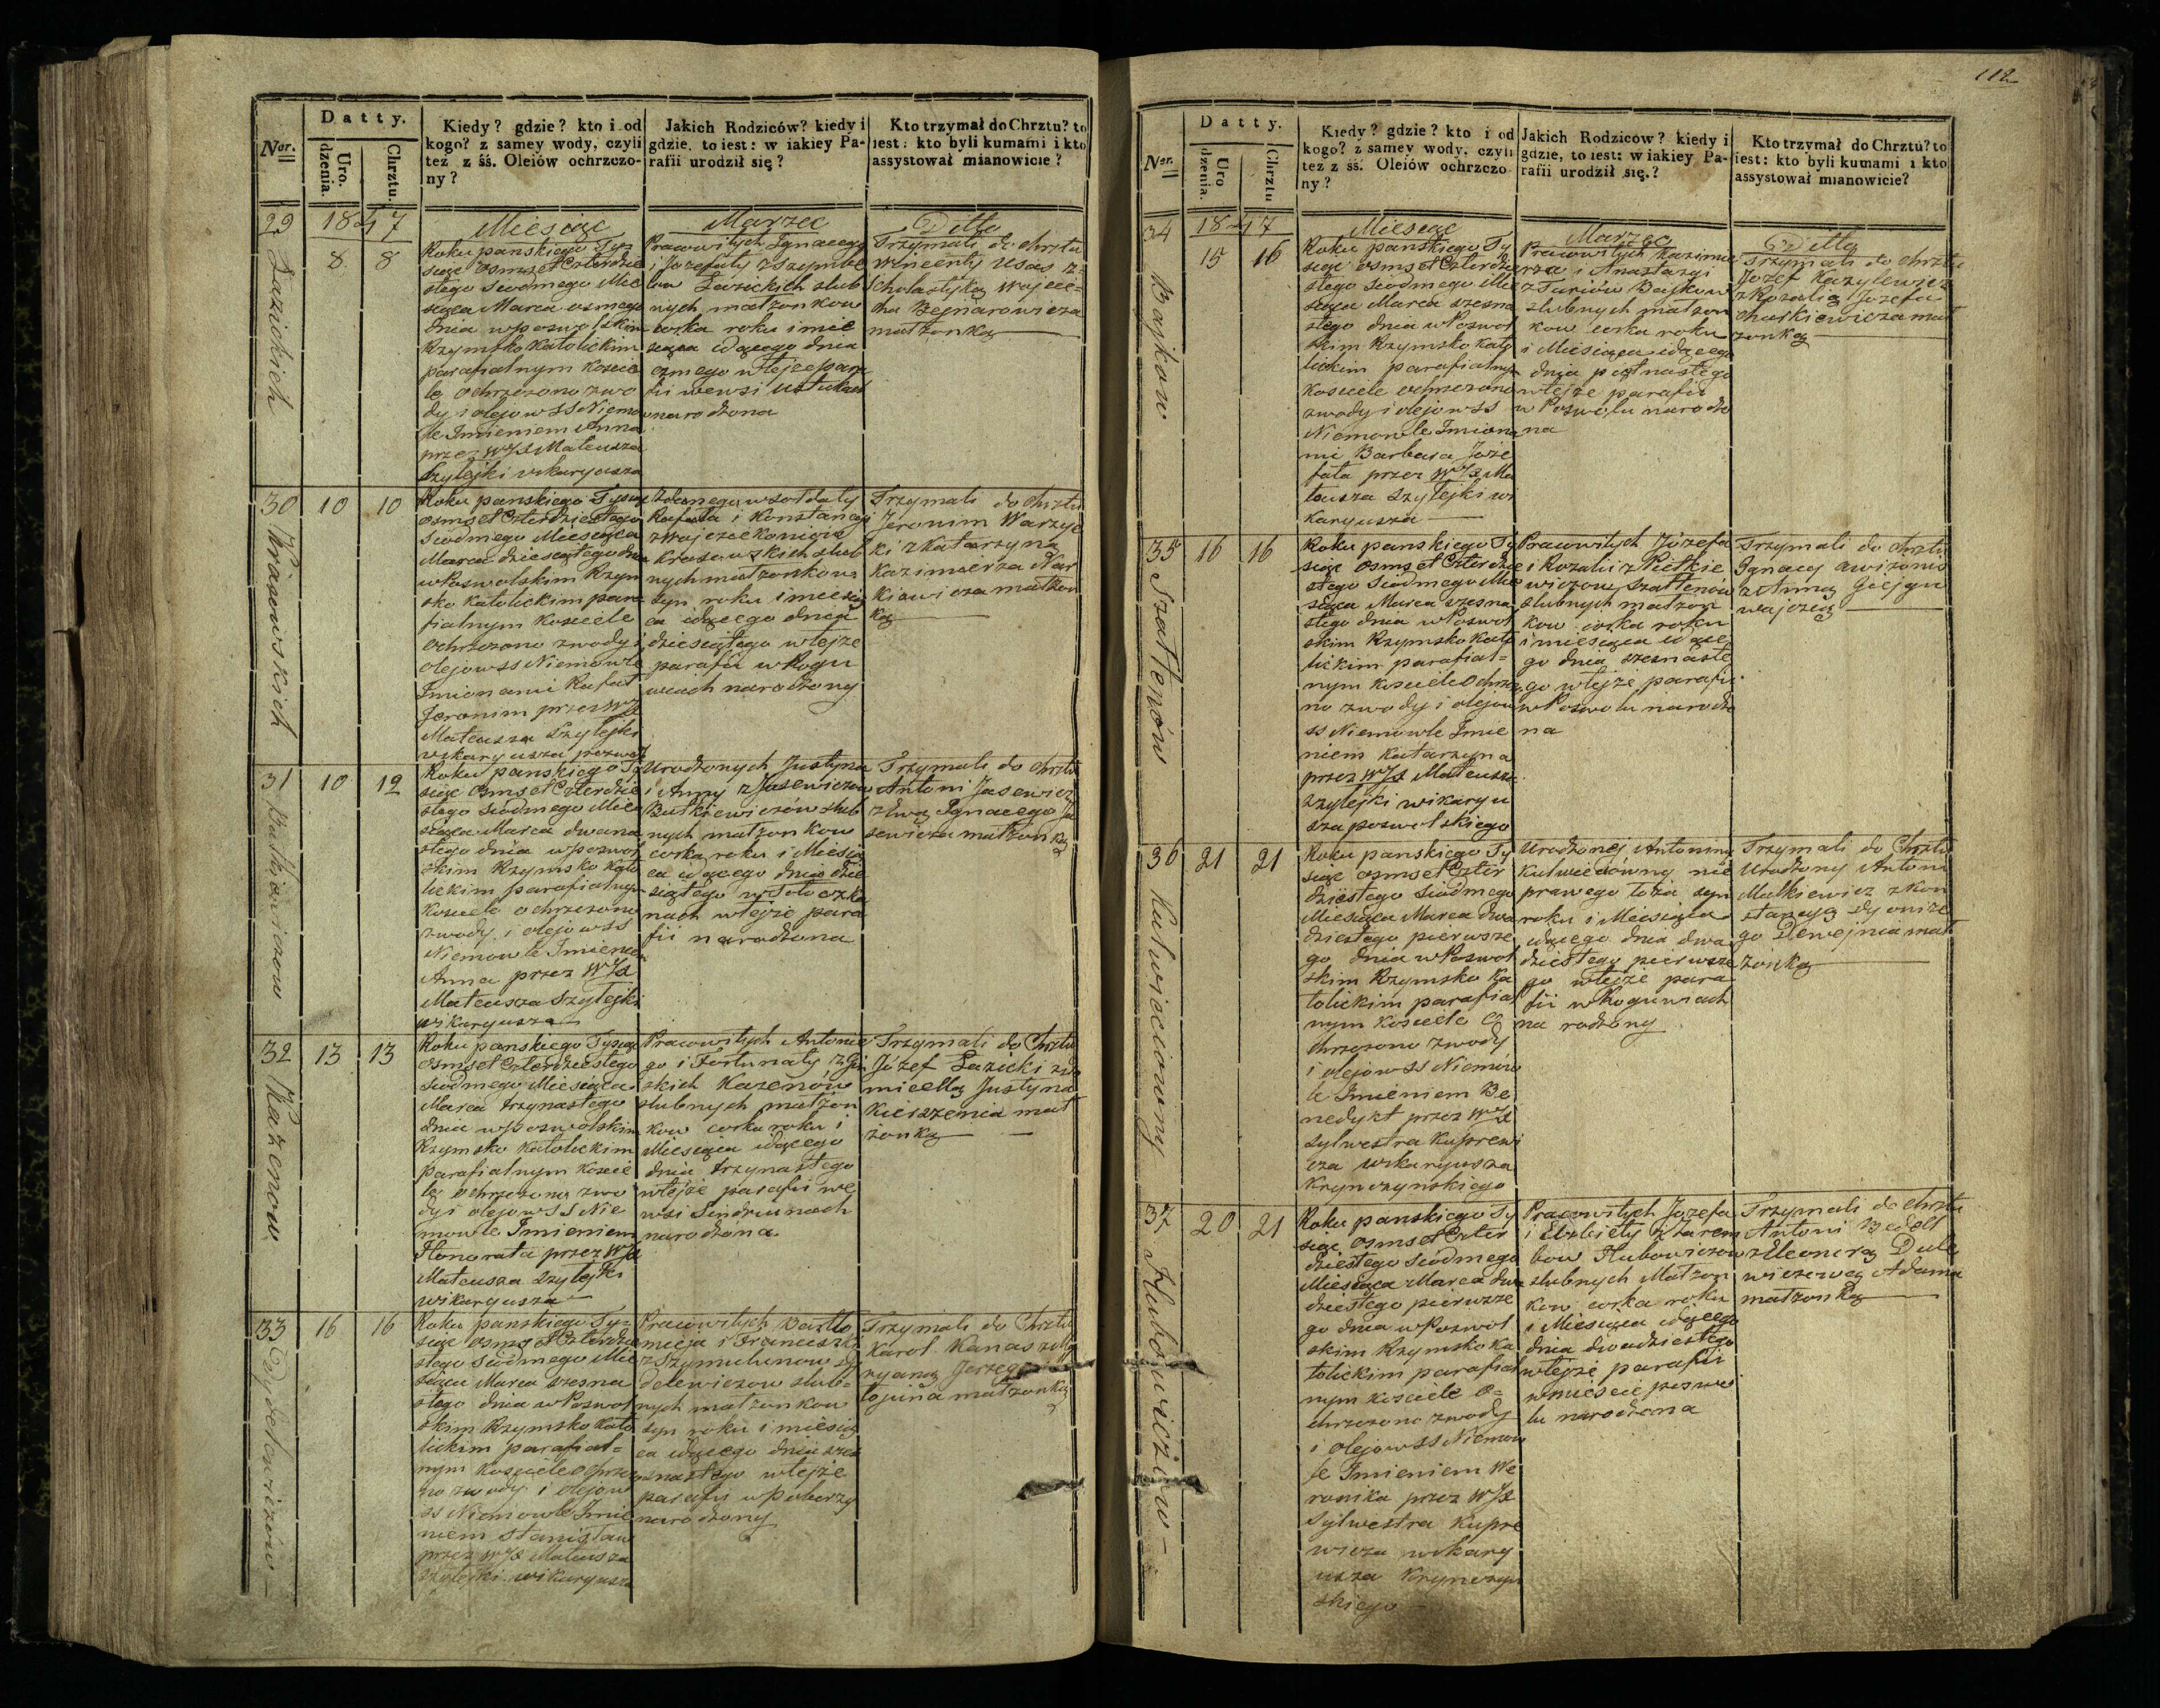 Nor.
Datty.
Urodzenia.
Chrztu.
Kiedy? gdzie? kto i od
kogo? z samey wody, czyli
też z śś. Oleiów ochrzczo-
ny?
Jakich Rodziców? kiedy i
gdzie, to iest: w iakiey Pa-
rafii urodził się?
Kto trzymał do Chrztu? to
iest: kto byli kumami i kto
assystował mianowicie?
29
Łazickich
1847
8
8
Miesiąc
Roku panskiego Tys
siąc osmset Czterdzie
stego siodmego Mie
siąca Marca osmego
dnia w poswolskim
Rzymsko Katolickim
parafialnym Koscie
le ochrzczono zwo
dy i olejow SS Niemo
le Imieniem Anna
przez WJX Mateusza
Szylejki wikaryusza
Marzec
Pracowitych Ignacego
i Jozefaty z Szymbe
low Łazickich slub
nych małzonkow
corka roku i mie
siąca idącego dnia
osmego w tejze para
fii we wsi
narodzona
Ditto
Trzymali do chrztu
Wincenty Usas z
Scholastyką Wojcie=
cha Bejnarowicza
małzonką
30
Krasowskich
10
10
Roku panskiego Tysiąc
osmset Czterdziestego
siodmego Miesiąca
Marca dziesiątego dnia
w Poswolskim Rzym
sko Katolickim para
fialnym Kosciele
ochrzczono z wody i
olejow SS Niemowle
Imionami Rafał
Jeronim przez WJX
Mateusza Szylejki
wikaryusza poswol
Zdanego w sołdaty
Rafała i Konstancyi
z Wojciekoniow
Krasowskich slub
nych małzonkow
syn roku i miesią
ca idącego dnia
dziesiątego w tejze
parafii w Rogu
wiach narodzony
Trzymali do chrztu
Jeronim Warzyc
ki z Katarzyną
Kazimierza Nar
kiewicza małzon
ką
31
Butkiewiczow
10
12
Roku panskiego Ty
siąc osmset Czterdzie
stego siodmego Mie
siąca Marca dwana
stego dnia w poswol
skim Rzymsko Kato
lickim parafialnym
Kosciele ochrzczono
z wody i olejow SS
Niemowle Imieniem
Anna przez WJX
Mateusza Szylejki
wikaryusza
Urodzonych Justyna
i Anny z Jasewiczow
Butkiewiczów slub
nych małzonkow
corka roku i Miesią
ca idącego dnia dzie
siątego w
nach w tejze para
fii narodzona
Trzymali do chrztu
Antoni Jasewicz
z Ewą Ignacego Ja
sewicza małzonką
32
Kazenow
13
13
Roku panskiego Tysiąc
osmset Czterdziestego
siodmego Miesiąca
Marca trzynastego
dnia w poswolskim
Rzymsko Katolickim
parafialnym Koscie
le ochrzczono z wo
dy i olejow SS Nie
mowle Imieniem
Honorata przez WJX
Mateusza Szylejki
wikaryusza
Pracowitych Antonie
go i Fortunaty z Gin
skich Kazenów
slubnych małzon
kow corka roku i
Miesiąca idącego
dnia trzynastego
w tejze parafii we
wsi Sendriunach
narodzona
Trzymali do Chrztu
Józef Łazicki z Do
micellą Justyna
Kierszenia mał
żonką
33
Dydelewiczów
16
16
Roku panskiego Ty-
siąc osmset Czterdzie
stego siodmego Mie
siąca Marca szesna
stego dnia w Poswol
skim Rzymsko Kato
lickim parafial=
nym Kosciele ochrzczo
no z wody i olejow
SS Niemowle Imie
niem Stanisław
przez WJX Mateusza
Szylejki wikaryusza
Pracowitych Bartło
mieja i Franciszki
z Szymulunow Dy
delewiczow slub=
nych małzonkow
syn roku i miesią
ca idącego dnia szes
nastego w tejze
parafii w Poberzy
narodzony
Trzymali do Chrztu
Karol Kanas z
ryaną Jerzego
małzonką
112
Nor.
Datty.
Urodzenia.
Chrztu
Kiedy? gdzie? kto i od
kogo? z samey wody, czyli
też z śś. Oleiów ochrzczo
ny?
Jakich Rodziców? kiedy i
gdzie, to iest: w iakiey Pa-
rafii urodził się?
Kto trzymał do Chrztu? to
iest: kto byli kumami i kto
assystował mianowicie?
34
Bajkow
1847
15
16
Miesiąc
Roku panskiego Ty
siąc osmset Czterdzie
stego siodmego Mie
siąca Marca szesna
stego dnia w Poswol
skim Rzymsko Kato
lickim parafialnym
Kosciele ochrzczono
z wody i olejow SS
Niemowle Imiona
mi Barbara Joze
fata przez WJX Ma
teusza Szylejki wi
karyusza
Marzec
Pracowitych Kazimie
rza i Anastazyi
z Turiów Bajkow
slubnych małzon
kow corka roku
i Miesiąca idącego
dnia piętnastego
w tejze parafii
w Poswolu narodzo
na
Ditto
Trzymali do chrztu
Jozef Kazylewicz
z Rozalią Jozefa
małzonką
35
Szattenów
16
16
Roku panskiego Ty
siąc osmset Czterdzie
stego siodmego Mie
siąca Marca szesna
stego dnia w Poswol
skim Rzymsko Kato
lickim parafial=
nym Kosciele ochrzczo
no z wody i olejow
SS Niemowle Imie
niem Katarzyna
przez WJX Mateusza
Szylejki wikaryu
sza poswolskiego
Pracowitych Józefa
i Rozalii z Pietkie
wiczow Szattenów
slubnych małzon
kow corka roku
i miesiąca idące
go dnia szesnaste
go w tejze parafii
w Poswolu narodzo
na
Trzymali do chrztu
Ignacy Awizonis
z Anną
36
Kulwiecionny
21
21
Roku panskiego Ty
siąc osmset Czter
dziestego siodmego
Miesiąca Marca dwa
dziestego pierwsze
go dnia w Poswol
skim Rzymsko Ka
tolickim parafial
nym Kosciele o
chrzczono z wody
i olejow SS Niemow
le Imieniem Be
nedykt przez WJX
Sylwestra Kuprewi
cza wikaryusza
Krynczynskiego
Urodzonej Antoniny
Kulwiecówny nie
prawego łoza syn
roku i Miesiąca
idącego dnia dwa
dziestego pierwsze
go w tejze para
fii w Roguwiach
narodzony
Trzymali do Chrztu
Urodzony Antoni
Malkiewicz z Kon
stancyą Dyonize
go Dewejnia mał
zonką
37
Hłubowiczów
20
21
Roku panskiego Ty
siąc osmset Czter
dziestego siodmego
Miesiąca Marca dwa
dziestego pierwsze
go dnia w Poswol
skim Rzymsko Ka
tolickim parafial
nym Kosciele o=
chrzczono z wody
i olejow SS Niemow
le Imieniem We
ronika przez WJX
Sylwestra Kupre
wicza wikary
usza Krynczyn
skiego
Pracowitych Jozefa
i Elzbiety z Zarem
bow Hłubowiczow
slubnych Małzon
kow corka roku
i Miesiąca idącego
dnia dwudziestego
w tejze parafii
w miescie poswo
lu narodzona
Trzymali do chrztu
Antoni Bedelt
z Eleonorą Dule
wiczową Adama
małzonką